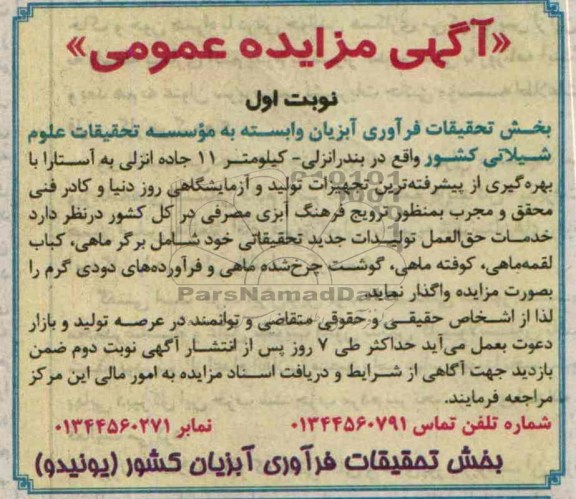 «آگهی مزایده عمومی»
نوبت اول
بخش تحقیقات فرآوری آبزیان وابسته به مؤسسه تحقیقات علوم
شیلاتی کشور واقع در بندرانزلی- کیلومتر ۱۱ جاده انزلی به آستارا با
بهره‌گیری از پیشرفته‌ترین تجهیزات تولید و آزمایشگاهی روز دنیا و کادر فنی
محقق و مجرب بمنظور ترویج فرهنگ آبزی مصرفی در کل کشور درنظر دارد
خدمات حق‌العمل تولیدات جدید تحقیقاتی خود شامل برگر ماهی، کباب
لقمه‌ماهی، کوفته ماهی، گوشت چرخ‌شده ماهی و فرآورده‌های دودی گرم را
بصورت مزایده واگذار نماید.
ParsNamadData
لذا از اشخاص حقیقی و حقوقی متقاضی و توانمند در عرصه تولید و بازار
دعوت بعمل می‌آید حداکثر طی ۷ روز پس از انتشار آگهی نوبت دوم ضمن
بازدید جهت آگاهی از شرایط و دریافت اسناد مزایده به امور مالی این مرکز
مراجعه فرمایند.
شماره تلفن تماس ۰۱۳۴۴۵۶۰۷۹۱ نمابر ۰۱۳۴۴۵۶۰۲۷۱
بخش تحقیقات فرآوری آبزیان کشور (یونیدو)